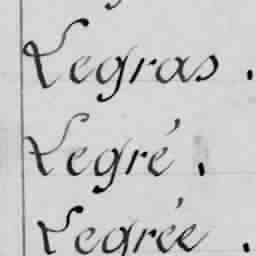 Legras.
Legré.
Legrée.